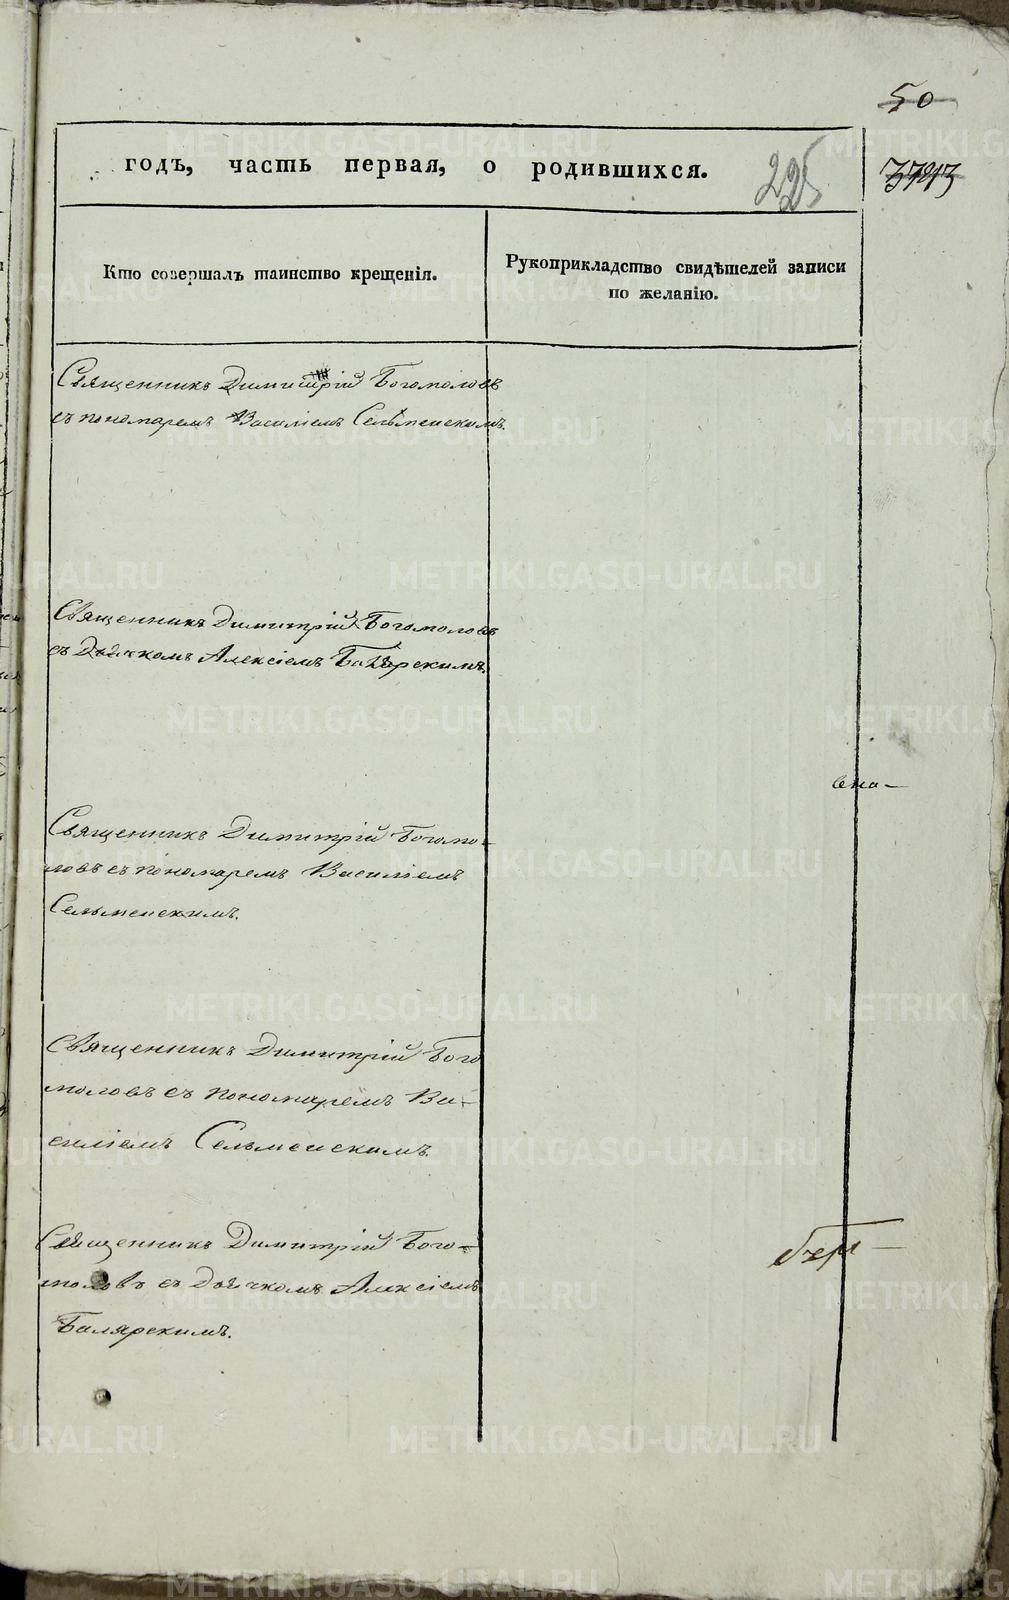 50
годъ, часть первая, о родившихся.
225
Кто совершалъ таинство крещенія.
Рукоприкладство свидѣтелей записи
по желанію.
Священникъ Димитрій Богомоловъ
съ пономаремъ Василіемъ Сельменскимъ.
Священникъ Димитрій Богомоловъ
съ Дьячкомъ Алексіемъ
Священникъ Димитрій Богомо-
ловъ съ пономаремъ Василіемъ
Сельменскимъ.
Священникъ Димитрій Бого
моловъ съ пономаремъ Ва-
силіемъ Сельменскимъ.
Священникъ Димитрій Бого-
моловъ съ Дьячкомъ Алексіемъ
Балярскимъ.
METRIKI.GASO-URAL.RU